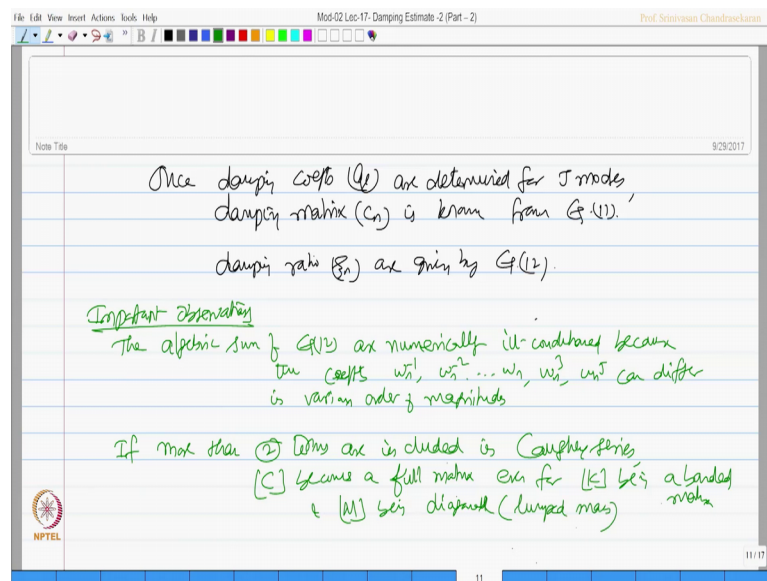 File Edit View Insert Actions Tools Help
Mod-02 Lec-17- Damping Estimate -2 (Part – 2)
Prof. Srinivasan Chandrasekaran
B I
Note Title
9/29/2017
Once damping coefts (al) are determined for J modes,
damping matrix (Cn) is known from Eq.(11).
damping ratio (ξn) are given by Eq(12).
Important observations
The algebraic sum of Eq(12) are numerically ill-conditioned because
the coefts ωn^-1, ωn^-2 ... ωn, ωn^3, ωn^5 can differ
is various order of magnitudes
If more than (2) terms are included is Caughey series
[C] became a full matrix even for [K] being a banded
matrix
& [M] being diagonal (lumped mass)
NPTEL
11/17
11